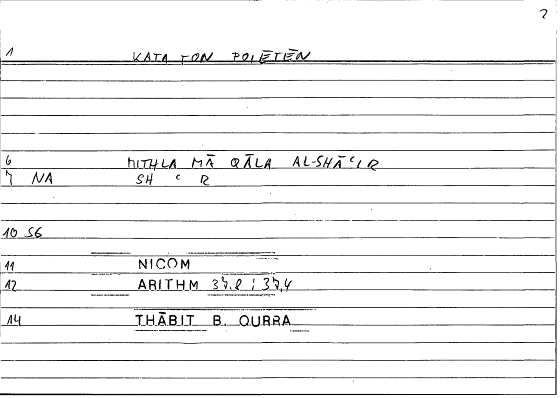 2
1 KATA TON POIĒTĒN
6 MITHLA MĀ QĀLA AL-SHĀʿIR
7 NA SH ʿ R
10 S6
11 NICOM
12 ARITHM
14 THĀBIT B. QURRA